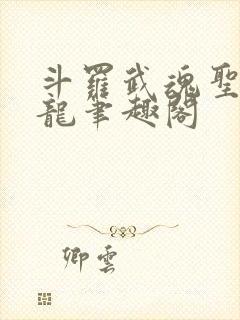 斗羅武魂聖
龍筆趣閣
卿雲